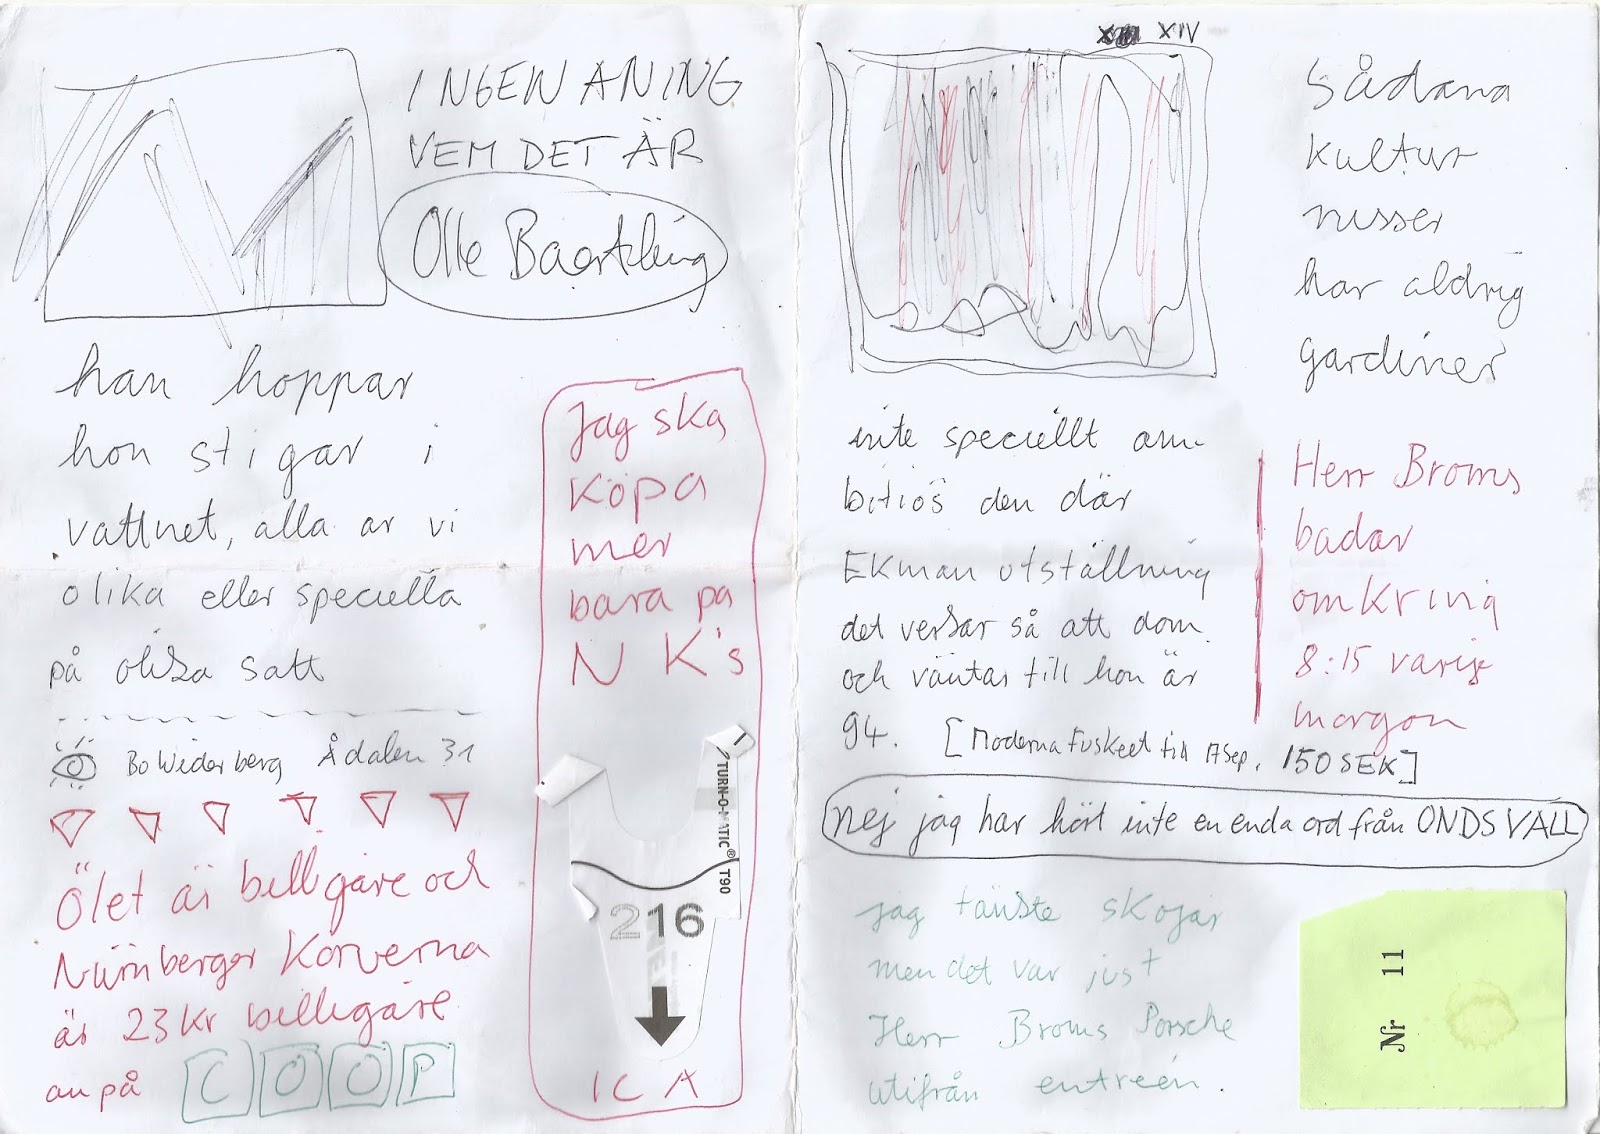 INGEN ANING
VEM DET ÄR
Olle Baertling
han hoppar
hon stigar i
vattnet, alla ar vi
olika eller speciella
på olika satt
Bo Widerberg Ådalen 31
Ölet är billigare och
Nürnberger Korverna
är 23 kr billigare
an på COOP
Jag ska
köpa
mer
bara pa
NK's
TURN-O-MATIC® T90
216
ICA
XIV
Sådana
kultur
nisser
har aldrig
gardiner
inte speciellt am-
bitiös den där
Ekman utställning
det verkar så att dom
och väntar till hon är
94. [Moderna Fuskeet till 17 Sep. 150 SEK]
Herr Broms
badar
omkring
8:15 varje
morgon
nej jag har hört inte en enda ord från ONDSVALL
jag tänkte skojar
men det var just
Herr Broms Porsche
utifrån entreén.
Nr 11